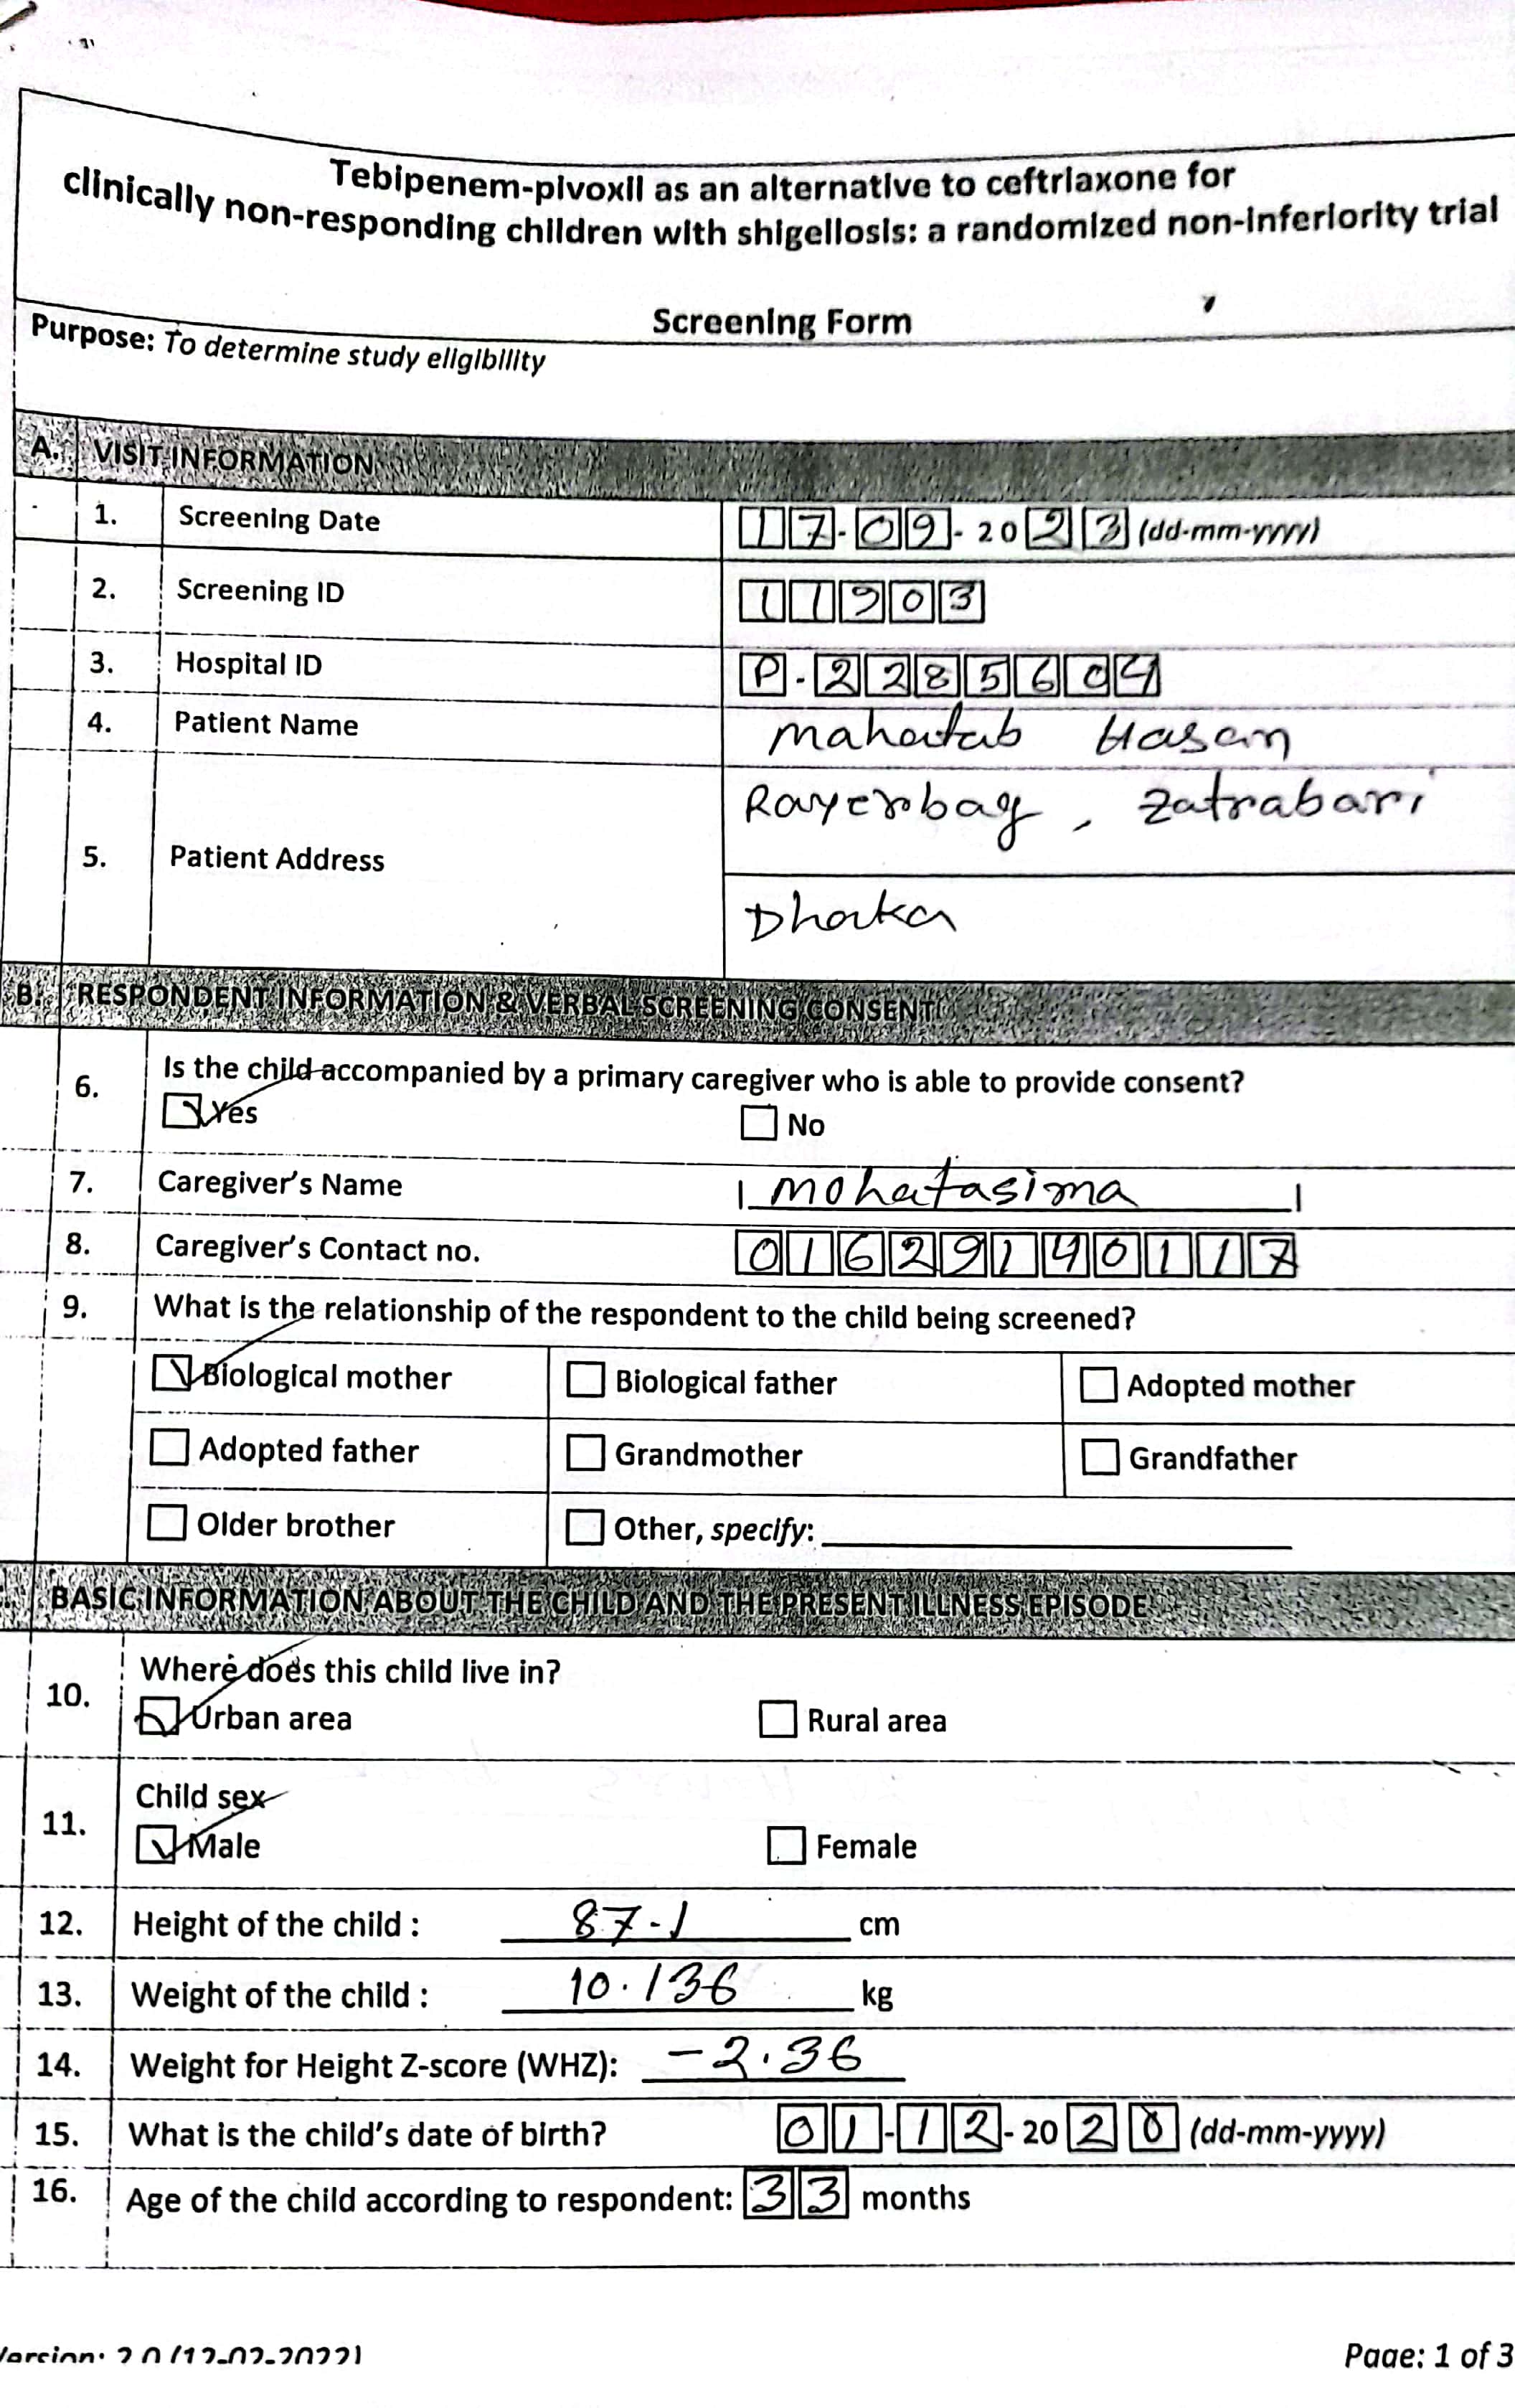 Tebipenem-pivoxil as an alternative to ceftriaxone for
clinically non-responding children with shigellosis: a randomized non-inferiority trial
Screening Form
Purpose: To determine study eligibility
A. VISIT INFORMATION
1. Screening Date 17-09-2023 (dd-mm-yyyy)
2. Screening ID 11903
3. Hospital ID P-2285604
4. Patient Name Mahatab Hasan
5. Patient Address Rayerbag, Zatrabari
Dhaka
B. RESPONDENT INFORMATION & VERBAL SCREENING CONSENT
6. Is the child accompanied by a primary caregiver who is able to provide consent?
Yes No
7. Caregiver's Name Mohatasima
8. Caregiver's Contact no. 01629140117
9. What is the relationship of the respondent to the child being screened?
Biological mother Biological father Adopted mother
Adopted father Grandmother Grandfather
Older brother Other, specify:
BASIC INFORMATION ABOUT THE CHILD AND THE PRESENT ILLNESS EPISODE
10. Where does this child live in?
Urban area Rural area
11. Child sex
Male Female
12. Height of the child : 87.1 cm
13. Weight of the child : 10.136 kg
14. Weight for Height Z-score (WHZ): -2.36
15. What is the child's date of birth? 01-12-2020 (dd-mm-yyyy)
16. Age of the child according to respondent: 33 months
Page: 1 of 3